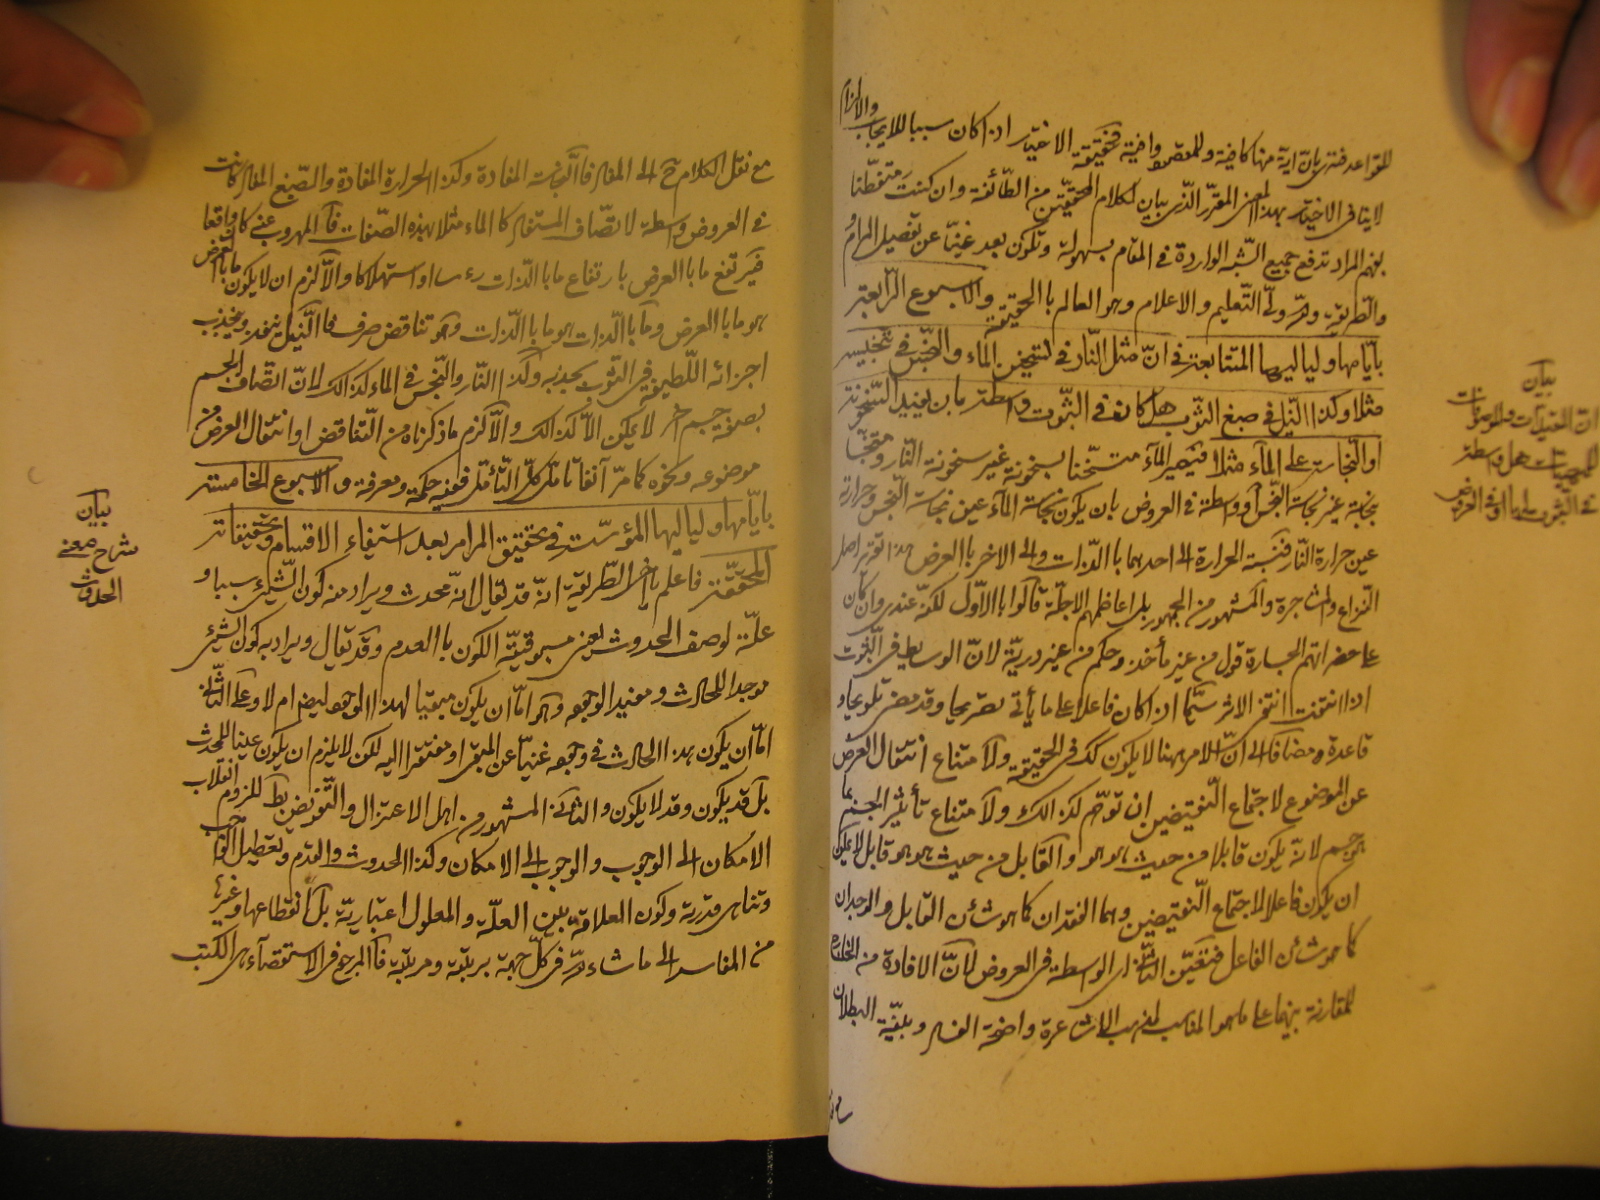 والالزام
للقواعد فتبيان اية منها كافية وللمقصود وافية فحقيقة الاختيار اذا كان سببا للايجاب
لا ينافى الاختيار بهذا المعنى المقرر الذى بيان لكلام المحققين من الطائفة وان كنت متفطنا
بفهم المراد تدفع جميع الشبه الواردة فى المقام بسهولة وتكون بعد غنيا عن تفصيل المرام
والطريق وهو ولى التعليم والاعلام وهو العالم بالحقيقة والاسبوع الرابعة
بايامها ولياليها المتتابعة فى ان مثل النار فى تسخين الماء والنجس فى تنجيسه
مثلا وكذا النيل فى صبغ الثوب هل كانه فى الثبوت واسطة بان يفيد السخونة
او النجاسة على الماء مثلا فيصير الماء متسخنا بسخونة غير سخونة النار ومتنجسا
بنجاسة غير نجاسة النجس او واسطة فى العروض بان يكون نجاسة الماء عين نجاسة النجس وحرارته
عين حرارة النار فنسبة الحرارة الى احدهما بالذات والى الاخر بالعرض هذا تقرير اصل
النزاع والمشاجرة والمشهور من الجمهور بل اعاظمهم الاجلة قالوا بالاول لكنه عندى وان كان
على حضراتهم الجسارة قول من غير مأخذ وحكم من غير درية لان الوسايط فى الثبوت
اذا انتفت انتفى الاثر سيما اذا كان فاعلا على ما يأتى تصريحا وقد مضى تلويحا و
قاعدة ومضافا الى ان الامر ههنا لا يكون كك فى الحقيقة ولامتناع انتقال العرض
عن الموضوع لاجتماع النقيضين ان توهم لكذالك ولامتناع تأثير الجسم بما
هو جسم لانه يكون قابلا من حيث هو هو والقابل من حيث هو هو قابل لا يمكن
ان يكون فاعلا لاجتماع النقيضين وهما الفقدان كما هو شأن القابل والوجدان
كما هو شأن الفاعل فتعين الثانى اى الواسطة فى العروض لان الافادة من الخارج
للمقارنة بينهما على ما هو المناسب لمذهب الاشاعرة واضحة الفساد وبينة البطلان
بيان
مع نقل الكلام ح الى المفاد فالنجاسة المفادة وكذا الحرارة المفادة والصبغ المفاد كانت
فى العروض واسطة لاتصاف المستفيد كالماء مثلا بهذه الصفات فالمهروب عنه كان واقعا
فيرتفع ما بالعرض بارتفاع ما بالذات رءسا او استهلاكا والا لزم ان لا يكون ما بالعرض
هو ما بالعرض وما بالذات هو ما بالذات وهو تناقض صرف فالنيل ينفد ويجذب
اجزائه اللطيفة فى الثوب بجذبه وكذا النار والنجس فى الماء كذالك لان اتصاف الجسم
بصفة جسم اخر لا يمكن الا كذالك والا لزم ما ذكرناه من التناقض او انتقال العرض من
موضوعه ونحوه كما مر آنفا تأمل كل التأمل ففيه حكمة ومعرفة والاسبوع الخامسة
بايامها ولياليها المؤنسة فى تحقيق المرام بعد استيفاء الاقسام وتحقيقاته
المحققة فاعلم يا اخى الطريقة انه قد يقال انه محدث ويراد منه كون الشىء سببا و
علة لوصف الحدوث يعنى مسبوقية الكون بالعدم وقد يقال ويراد به كون الشىء
موجدا للحادث ومفيدا لوجوده وهو اما ان يكون مبقيا لهذا الوجود ايضا ام لا وعلى الثانى
اما ان يكون هذا الحادث فى وجوده غنيا عن المبقى او مفتقرا اليه لكن لا يلزم ان يكون عينا للمحدث
بل قد يكون وقد لا يكون والثانى المشهور من اهل الاعتزال والتفويض بط للزوم انقلاب
الامكان الى الوجوب والوجوب الى الامكان وكذا الحدوث والقدم وتعطيل الواجب
وتناهى قدرته وكون العلاقة بين العلة والمعلول اعتبارية بل انقطاعها وغيرها
من المفاسد الى ما شاء الله فى كل جهة برتبة ومرتبة فالمرجع فى الاستقصاء هى الكتب
بيان
شرح معنى
الحدوث